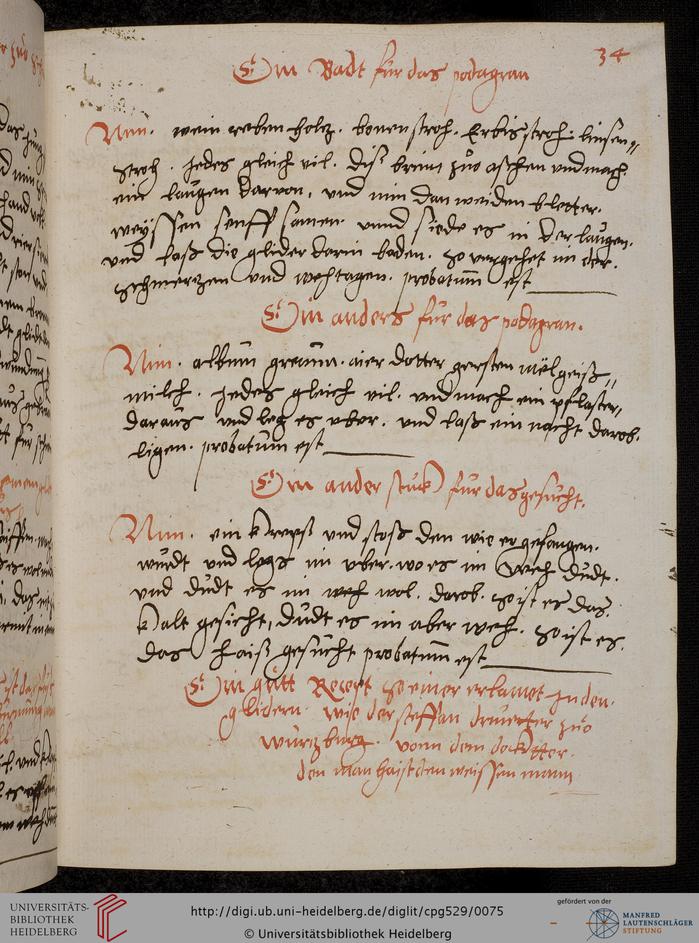 34
Ein Badt für das podagran
Nim. wein reben holtz. bonen stroh. Erbis stroh. linsen„
stroh. Jedes gleich vil. diß brenn zuo aschen und mach.
ein laugen darvon, und nim dan weiden bletter.
weyssen senff samen. unnd siede es in der laugen.
und laß die glider darin baden. so vergehet im der.
schmertzen und wehtagen. probatum̄ est
Ein anders für das podagran.
Nim. album̄ aier dotter gersten mël geiß„
milch. Jedes gleich vil. und mach ein pflaster„
daraus und leg es uber. und laß ein nacht darob.
ligen. probatum est
Ein ander stuck für das gesücht.
Nim. ein krepß und stoß den wie er gefangen.
würdt und legs im uber. wo es im Weh dudt.
und dudt es im wol. darob. so ist es das.
kalt gesicht, dudt es im aber weh. so ist es.
das haiß gesücht probatum̄ est
Ein gutt Recept so einer erlamet In den.
glidern. wie der steffan zuo
würtzburg. vonn dem docktter.
den man haist den weissen mann
UNIVERSITÄTS-
BIBLIOTHEK
HEIDELBERG
http://digi.ub.uni-heidelberg.de/diglit/cpg529/0075
© Universitätsbibliothek Heidelberg
gefördert von der
MANFRED
LAUTENSCHLÄGER
STIFTUNG